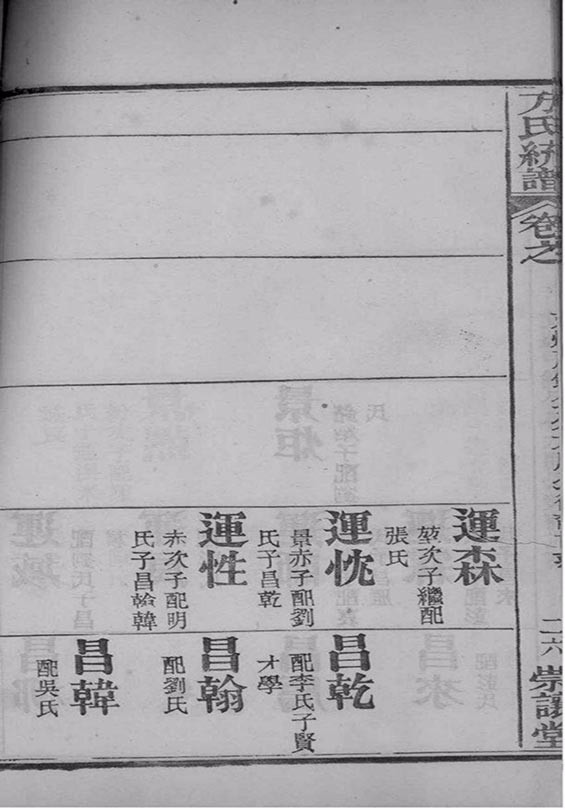 方氏統譜
卷之
二六
崇讓堂
運森
堃次子繼配
張氏
運忱
景亦子配劉
氏子昌乾
運性
赤次子配明
氏子昌翰韓
昌乾
配李氏子賢
才學
昌翰
配劉氏
昌韓
配吳氏